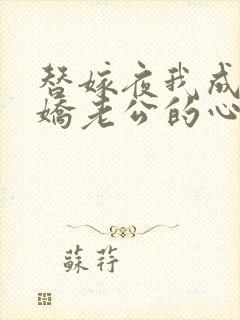 替嫁夜我成
嬌老公的心
蘇荇